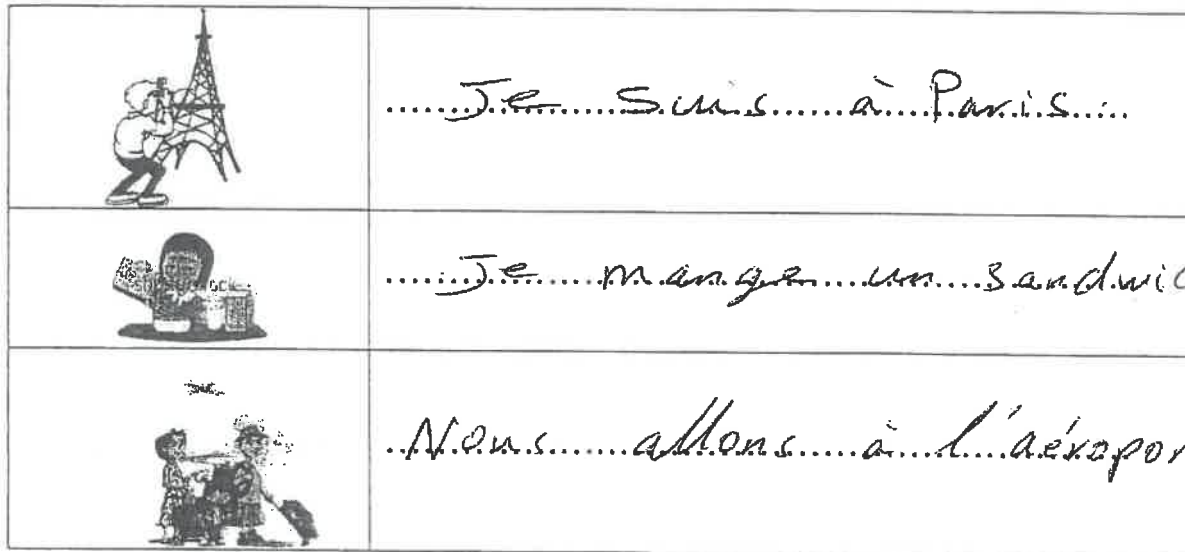 Je suis à Paris.
Je mange un sandwic
Nous allons à l'aéropor